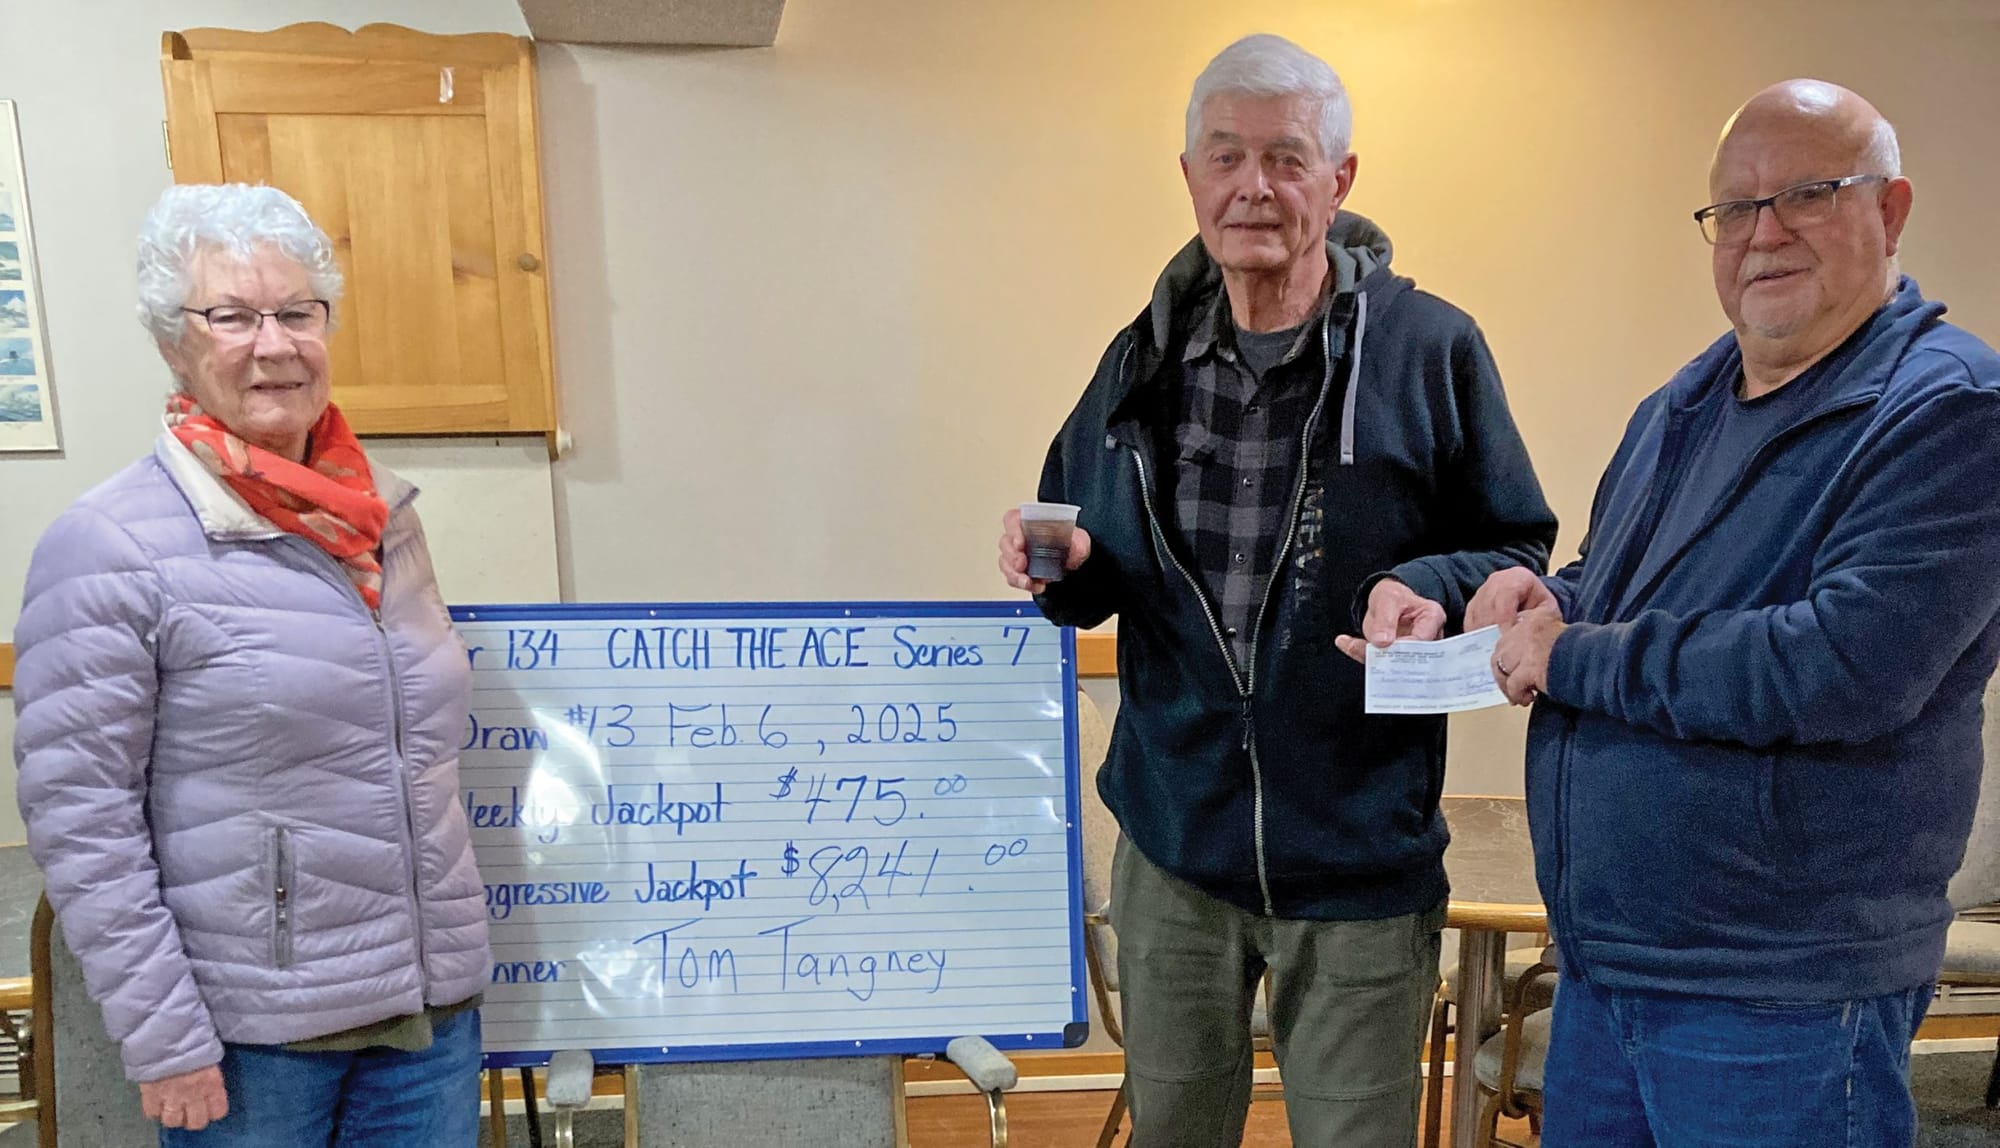 r 134 CATCH THE ACE Series 7
Draw #13 Feb. 6, 2025
Weekly Jackpot $475.00
ogressive Jackpot $8,241.00
nner Tom Tangney